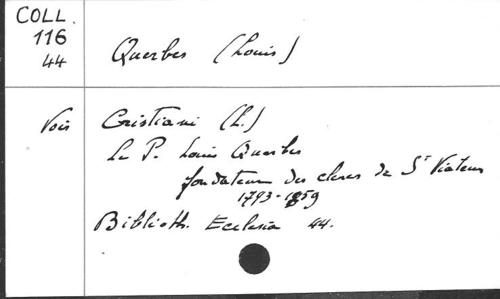 COLL.
116
44
Querbes (Louis)
Voir Cristiani (L.)
Le P. Louis Querbes
fondateur des clercs de St Viateur
1793-1859
Biblioth. Ecclesia 44.